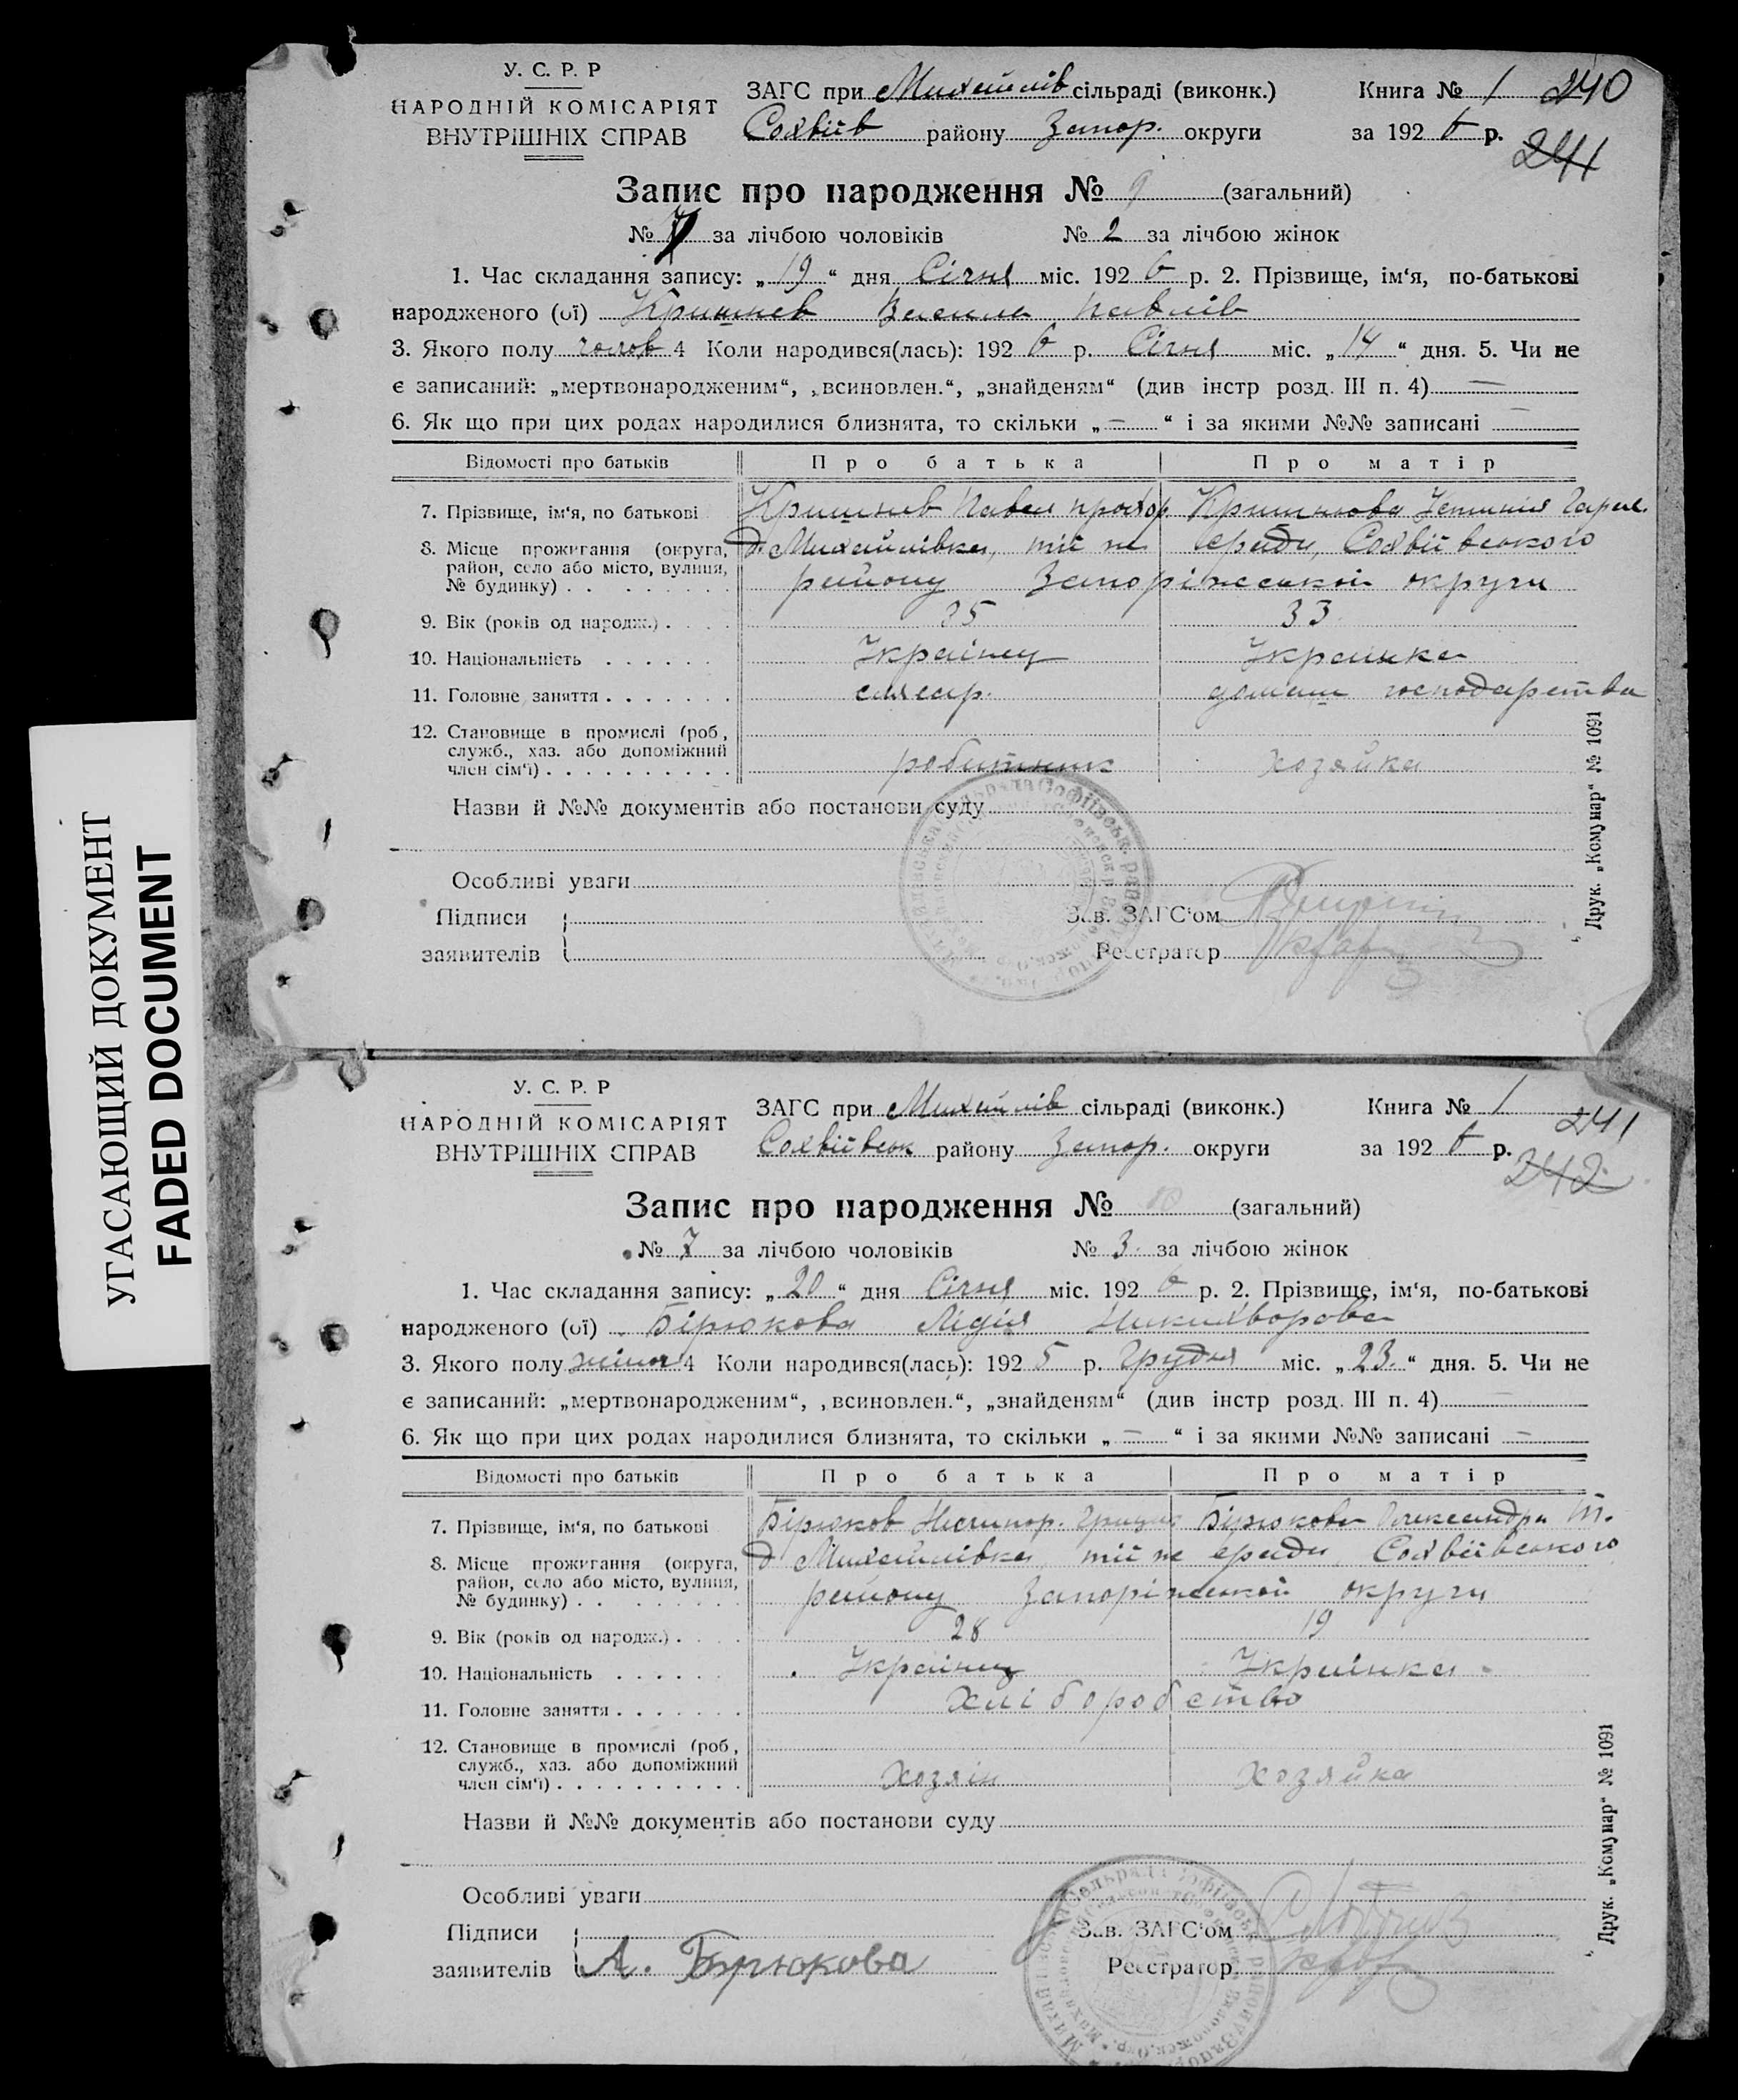 УГАСАЮЩИЙ ДОКУМЕНТ
FADED DOCUMENT
У. С. Р. Р
НАРОДНІЙ КОМІСАРІЯТ
ВНУТРІШНІХ СПРАВ
ЗАГС при Михайлів сільраді (виконк.)
Софіїв району Запор. округи
Книга № 1 240
за 192 6 р. 241
Запис про народження № 9 (загальний)
№ 7 за лічбою чоловіків № 2 за лічбою жінок
1. Час складання запису: „ 19 “ дня Січня міс. 192 6 р. 2. Прізвище, ім‘я, по-батькові
народженого (ої) Василь Павлів
3. Якого полу чолов 4 Коли народився(лась): 192 6 р. Січня міс. „ 14 “ дня. 5. Чи не
є записаний: „мертвонародженим“, „всиновлен.“, „знайденям“ (див інстр розд. III п. 4) —
6. Як що при цих родах народилися близнята, то скільки „ — “ і за якими №№ записані —
Відомості про батьків Про батька Про матір
7. Прізвище, ім‘я, по батькові Павел Прохор.
8. Місце прожигання (округа, район, село або місто, вулиця, № будинку) . . . . . . . . . д. Михайлівка, тії ж сради, Софвіївського
району Запоріжської округи
9. Вік (років од народж.) . . . . 35 33
10. Національність . . . . . . Українец Українка
11. Головне заняття . . . . . . . слесар. домаш господарства
12. Становище в промислі (роб, служб., хаз. або допоміжний член сім‘ї) . . . . . . . . . . робітник хозяйка
Назви й №№ документів або постанови суду
Особливі уваги
Підписи
заявителів
Зав. ЗАГС‘ом
Реєстратор
Друк. „Комунар“ № 1091
У. С. Р. Р
НАРОДНІЙ КОМІСАРІЯТ
ВНУТРІШНІХ СПРАВ
ЗАГС при Михайлів сільраді (виконк.)
Софвіївськ району Запор. округи
Книга № 1 241
за 192 6 р. 242
Запис про народження № 10 (загальний)
№ 7 за лічбою чоловіків № 3 за лічбою жінок
1. Час складання запису: „ 20 “ дня Січня міс. 192 6 р. 2. Прізвище, ім‘я, по-батькові
народженого (ої) Бірюкова Лідія Никихворова
3. Якого полу жіноч 4 Коли народився(лась): 192 5 р. Грудня міс. „ 23. “ дня. 5. Чи не
є записаний: „мертвонародженим“, „всиновлен.“, „знайденям“ (див інстр розд. III п. 4) —
6. Як що при цих родах народилися близнята, то скільки „ — “ і за якими №№ записані —
Відомості про батьків Про батька Про матір
7. Прізвище, ім‘я, по батькові Бірюков Бірюкова Олександра Т.
8. Місце прожигання (округа, район, село або місто, вулиця, № будинку) . . . . . . . . . д Михайлівка тії ж сради Софвіївського
району Запоріжської округи
9. Вік (років од народж.) . . . . 28 19
10. Національність . . . . . . Українец Українка
11. Головне заняття . . . . . . . Хліборобство
12. Становище в промислі (роб, служб., хаз. або допоміжний член сім‘ї) . . . . . . . . . . Хозяін Хозяйка
Назви й №№ документів або постанови суду
Особливі уваги
Підписи
заявителів А. Бірюкова
Зав. ЗАГС‘ом
Реєстратор
Друк. „Комунар“ № 1091